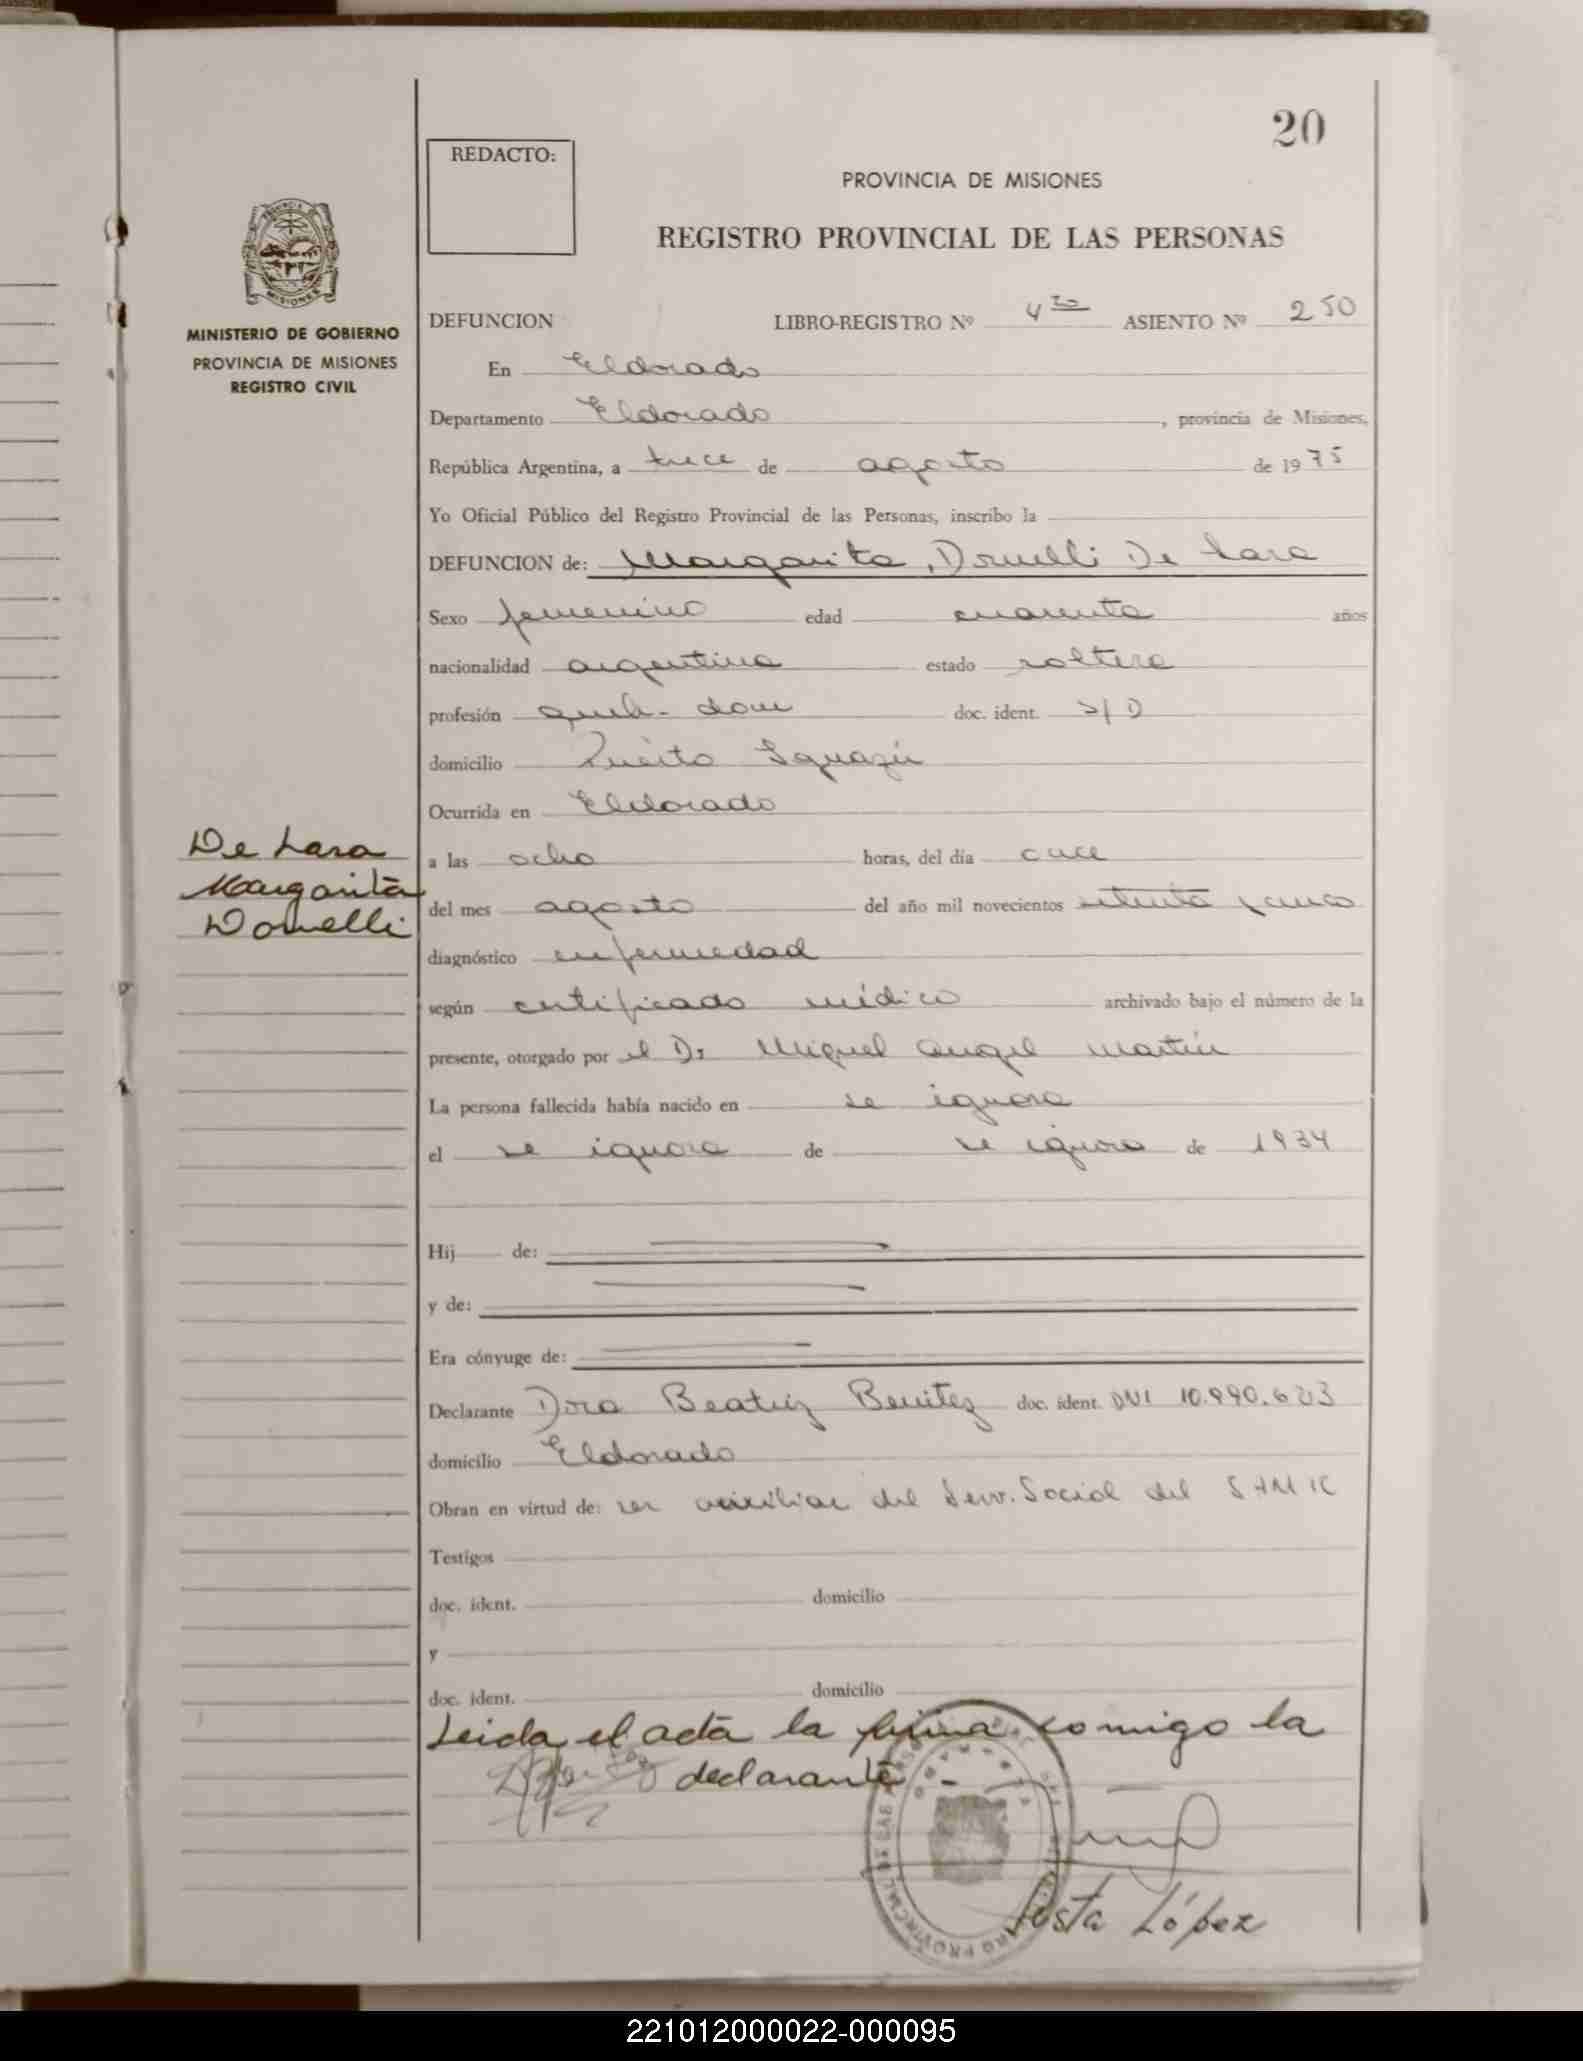 20
REDACTO:
PROVINCIA DE MISIONES
REGISTRO PROVINCIAL DE LAS PERSONAS
MINISTERIO DE GOBIERNO
PROVINCIA DE MISIONES
REGISTRO CIVIL
DEFUNCION LIBRO-REGISTRO Nº 4to ASIENTO Nº 250
En Eldorado
Departamento Eldorado, provincia de Misiones,
República Argentina, a trece de agosto de 1975
Yo Oficial Público del Registro Provincial de las Personas, inscribo la
DEFUNCION de: Margarita, Dornelli De Lara
Sexo femenino edad cuarenta años
nacionalidad argentina estado soltera
profesión queh. dom doc. ident. S/D
domicilio Puerto Iguazú
Ocurrida en Eldorado
De Lara
Margarita
Dornelli
a las ocho horas, del día once
del mes agosto del año mil novecientos setenta y cinco
diagnóstico enfermedad
según certificado médico archivado bajo el número de la
presente, otorgado por el Dr Miguel Angel Martín
La persona fallecida había nacido en se ignora
el se ignora de se ignora de 1934
Hij de:
y de:
Era cónyuge de:
Declarante Dora Beatriz Benitez doc. ident. DNI
domicilio Eldorado
Obran en virtud de: ser auxiliar del Serv. Social del SAMIC
Testigos
doc. ident. domicilio
y
doc. ident. domicilio
Leida el acta la firma comigo la
declarante
López
221012000022-000095